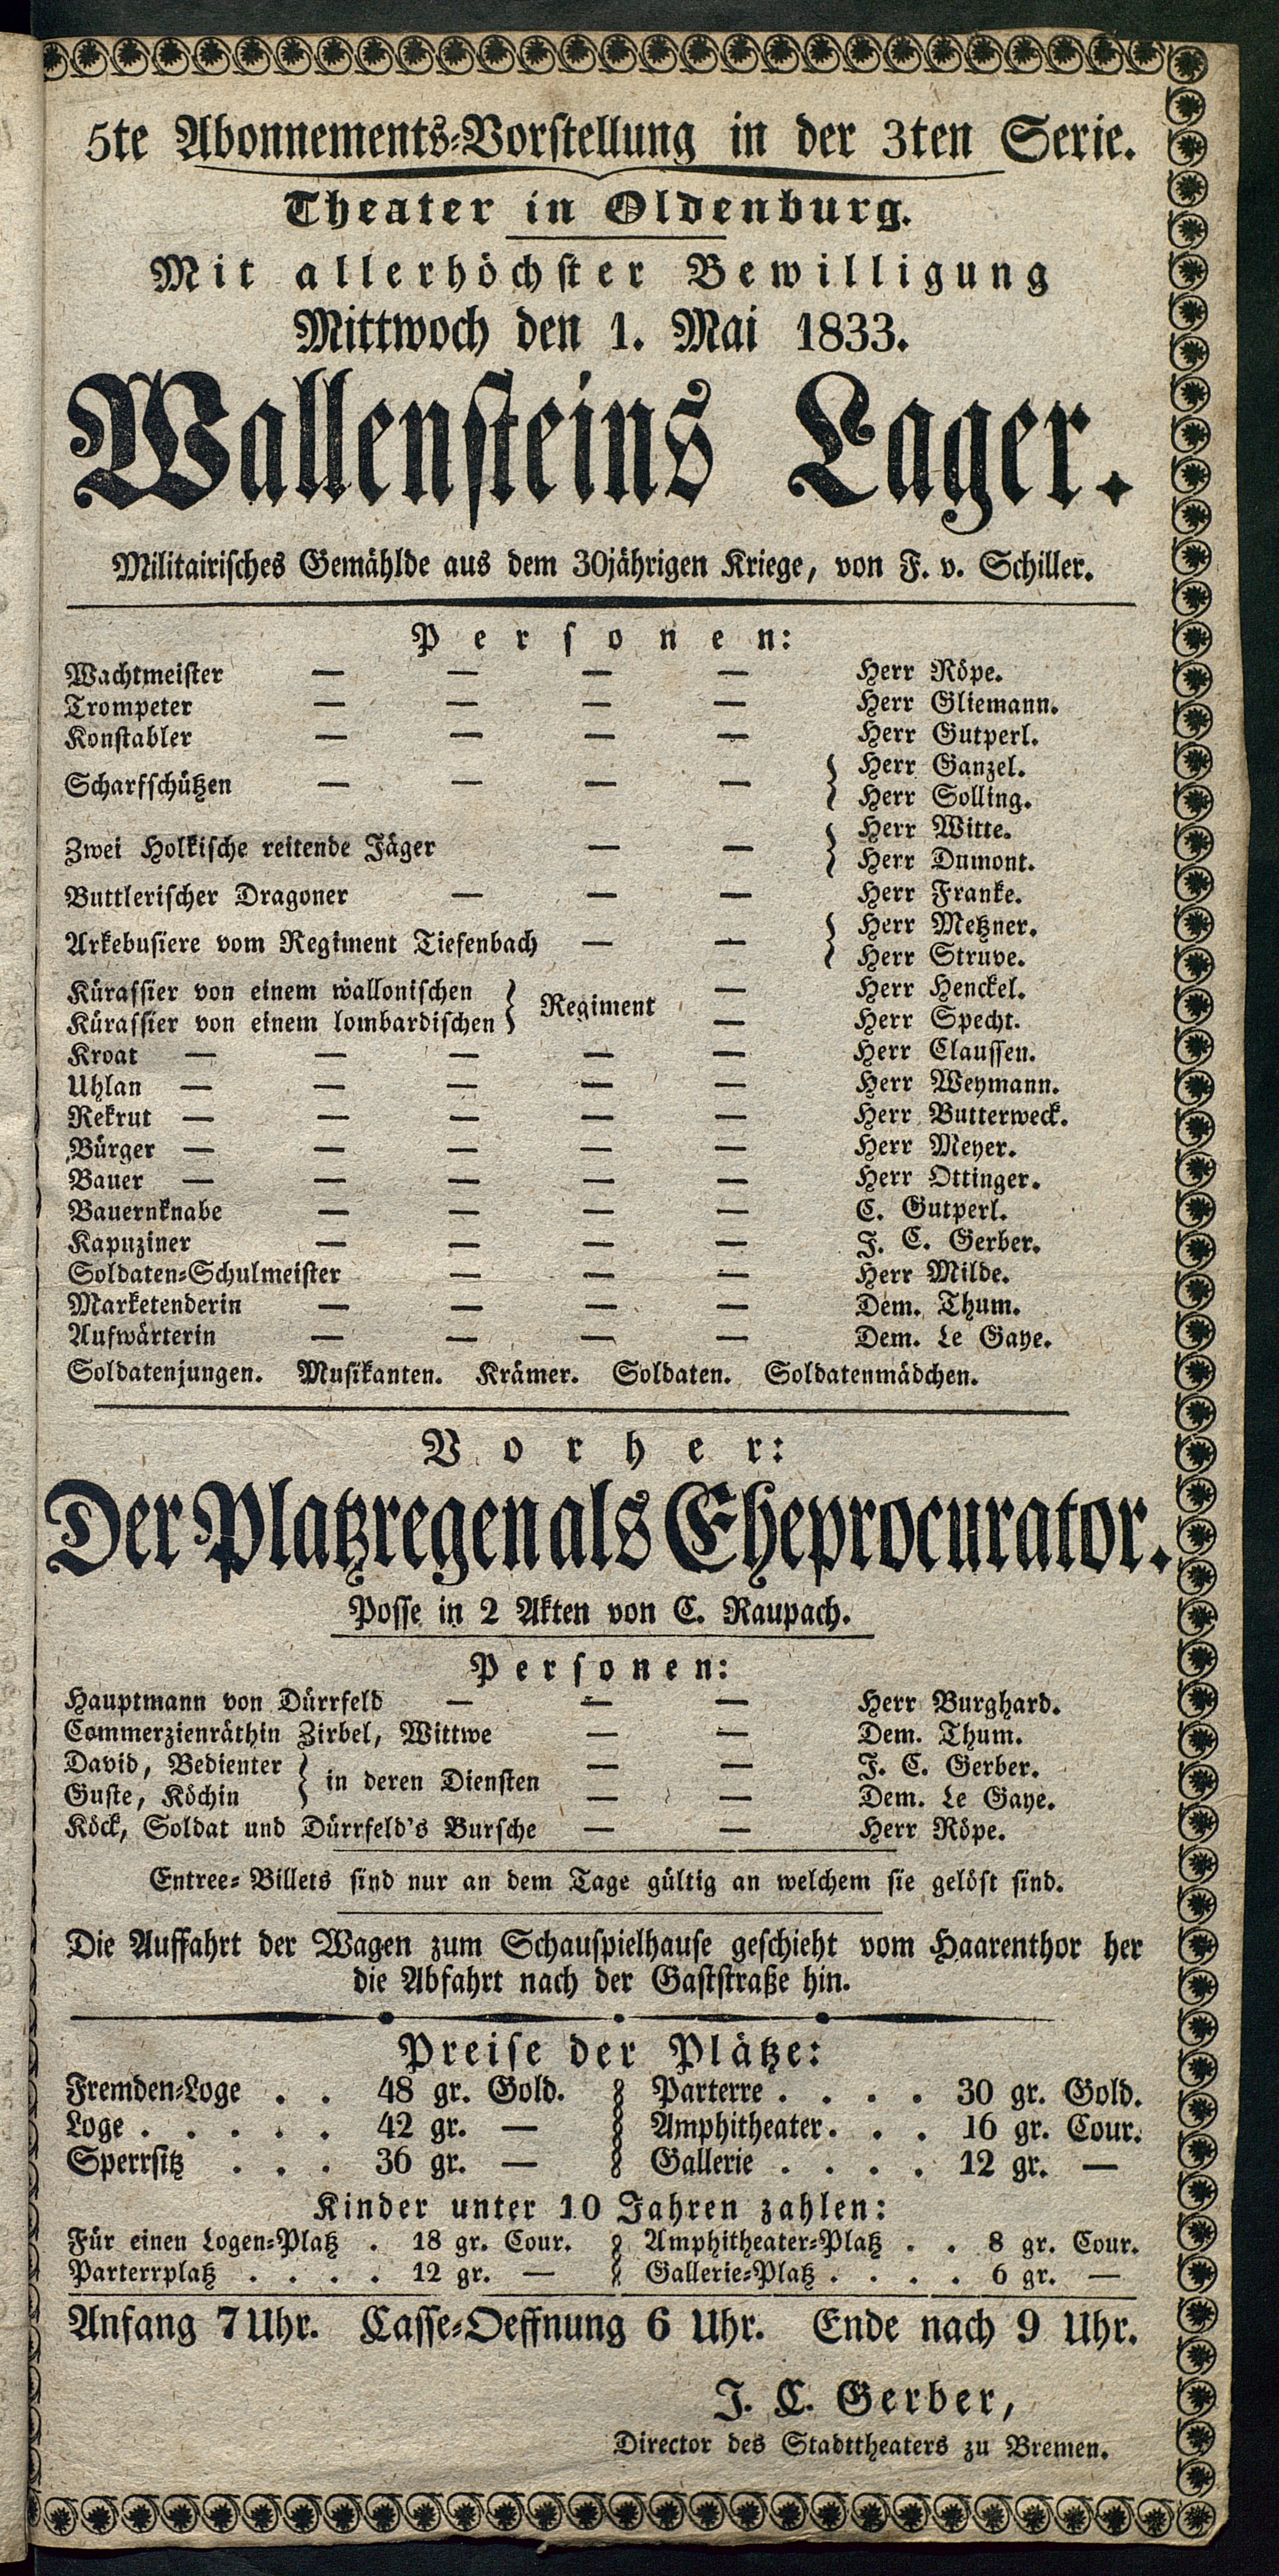 5te Abonnements-Vorstellung in der 3ten Serie.
Theater in Oldenburg.
Mit allerhöchster Bewilligung
Mittwoch den 1. Mai 1833.
Wallensteins Lager.
Militairisches Gemählde aus dem 30jährigen Kriege, von F. v. Schiller.
Personen:
Wachtmeister — — — — Herr Röpe.
Trompeter — — — — Herr Gliemann.
Konstabler — — — — Herr Gutperl.
Scharfschützen — — — — { Herr Ganzel.
Herr Solling.
Zwei Holkische reitende Jäger — — { Herr Witte.
Herr Dumont.
Buttlerischer Dragoner — — — Herr Franke.
Arkebusiere vom Regiment Tiefenbach — — { Herr Metzner.
Herr Struve.
Kürassier von einem wallonischen } Regiment — Herr Henckel.
Kürassier von einem lombardischen — Herr Specht.
Kroat — — — — — Herr Claussen.
Uhlan — — — — — Herr Weymann.
Rekrut — — — — — Herr Butterweck.
Bürger — — — — — Herr Meyer.
Bauer — — — — — Herr Ottinger.
Bauernknabe — — — — C. Gutperl.
Kapuziner — — — — J. C. Gerber.
Soldaten-Schulmeister — — — Herr Milde.
Marketenderin — — — — Dem. Thum.
Aufwärterin — — — — Dem. Le Gaye.
Soldatenjungen. Musikanten. Krämer. Soldaten. Soldatenmädchen.
Vorher:
Der Platzregen als Eheprocurator.
Posse in 2 Akten von E. Raupach.
Personen:
Hauptmann von Dürrfeld — — — Herr Burghard.
Commerzienräthin Zirbel, Wittwe — — Dem. Thum.
David, Bedienter } in deren Diensten — — J. C. Gerber.
Guste, Köchin — — Dem. Le Gaye.
Köck, Soldat und Dürrfeld's Bursche — — Herr Röpe.
Entree-Billets sind nur an dem Tage gültig an welchem sie gelöst sind.
Die Auffahrt der Wagen zum Schauspielhause geschieht vom Haarenthor her
die Abfahrt nach der Gaststraße hin.
Preise der Plätze:
Fremden-Loge . . 48 gr. Gold. Parterre . . . . 30 gr. Gold.
Loge . . . . . 42 gr. — Amphitheater . . . 16 gr. Cour.
Sperrsitz . . . 36 gr. — Gallerie . . . . 12 gr. —
Kinder unter 10 Jahren zahlen:
Für einen Logen-Platz . 18 gr. Cour. Amphitheater-Platz . . 8 gr. Cour.
Parterrplatz . . . . 12 gr. — Gallerie-Platz . . . . 6 gr. —
Anfang 7 Uhr. Casse-Oeffnung 6 Uhr. Ende nach 9 Uhr.
J. C. Gerber,
Director des Stadttheaters zu Bremen.